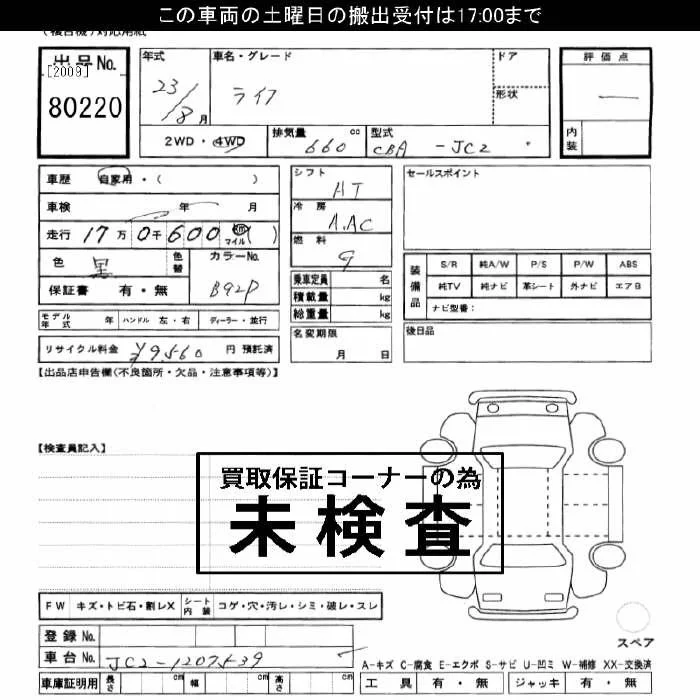 この車両の土曜日の搬出受付は17:00まで
出品No.
[2009]
80220
年式
23/8月
車名・グレード
ライフ
ドア
形状
評価点
―
内装
2WD・4WD
排気量 660 cc
型式 CBA - JC2
車歴 自家用・( )
車検 年 月
走行 17万0千600 km マイル ( )
色 黒
色替
カラーNo.
B92P
保証書 有・無
シフト AT
冷房 AAC
燃料 G
乗車定員 名
積載量 kg
総重量 kg
セールスポイント
装備品
S/R 純A/W P/S P/W ABS
純TV 純ナビ 革シート 外ナビ エアB
ナビ型番:
モデル年式 年 ハンドル 左・右 ディーラー・並行
名変期限
月 日
後日品
リサイクル料金 ¥9560 円 預託済
【出品店申告欄(不良箇所・欠品・注意事項等)】
【検査員記入】
買取保証コーナーの為
未検査
FW キズ・トビ石・割レX シート内装 コゲ・穴・汚レ・シミ・破レ・スレ
登録No.
車台No. JC2-1207539
スペア
A-キズ C-腐食 E-エクボ S-サビ U-凹ミ W-補修 XX-交換済
車庫証明用 長さ cm 幅 cm 高さ cm
工具 有・無 ジャッキ 有・無